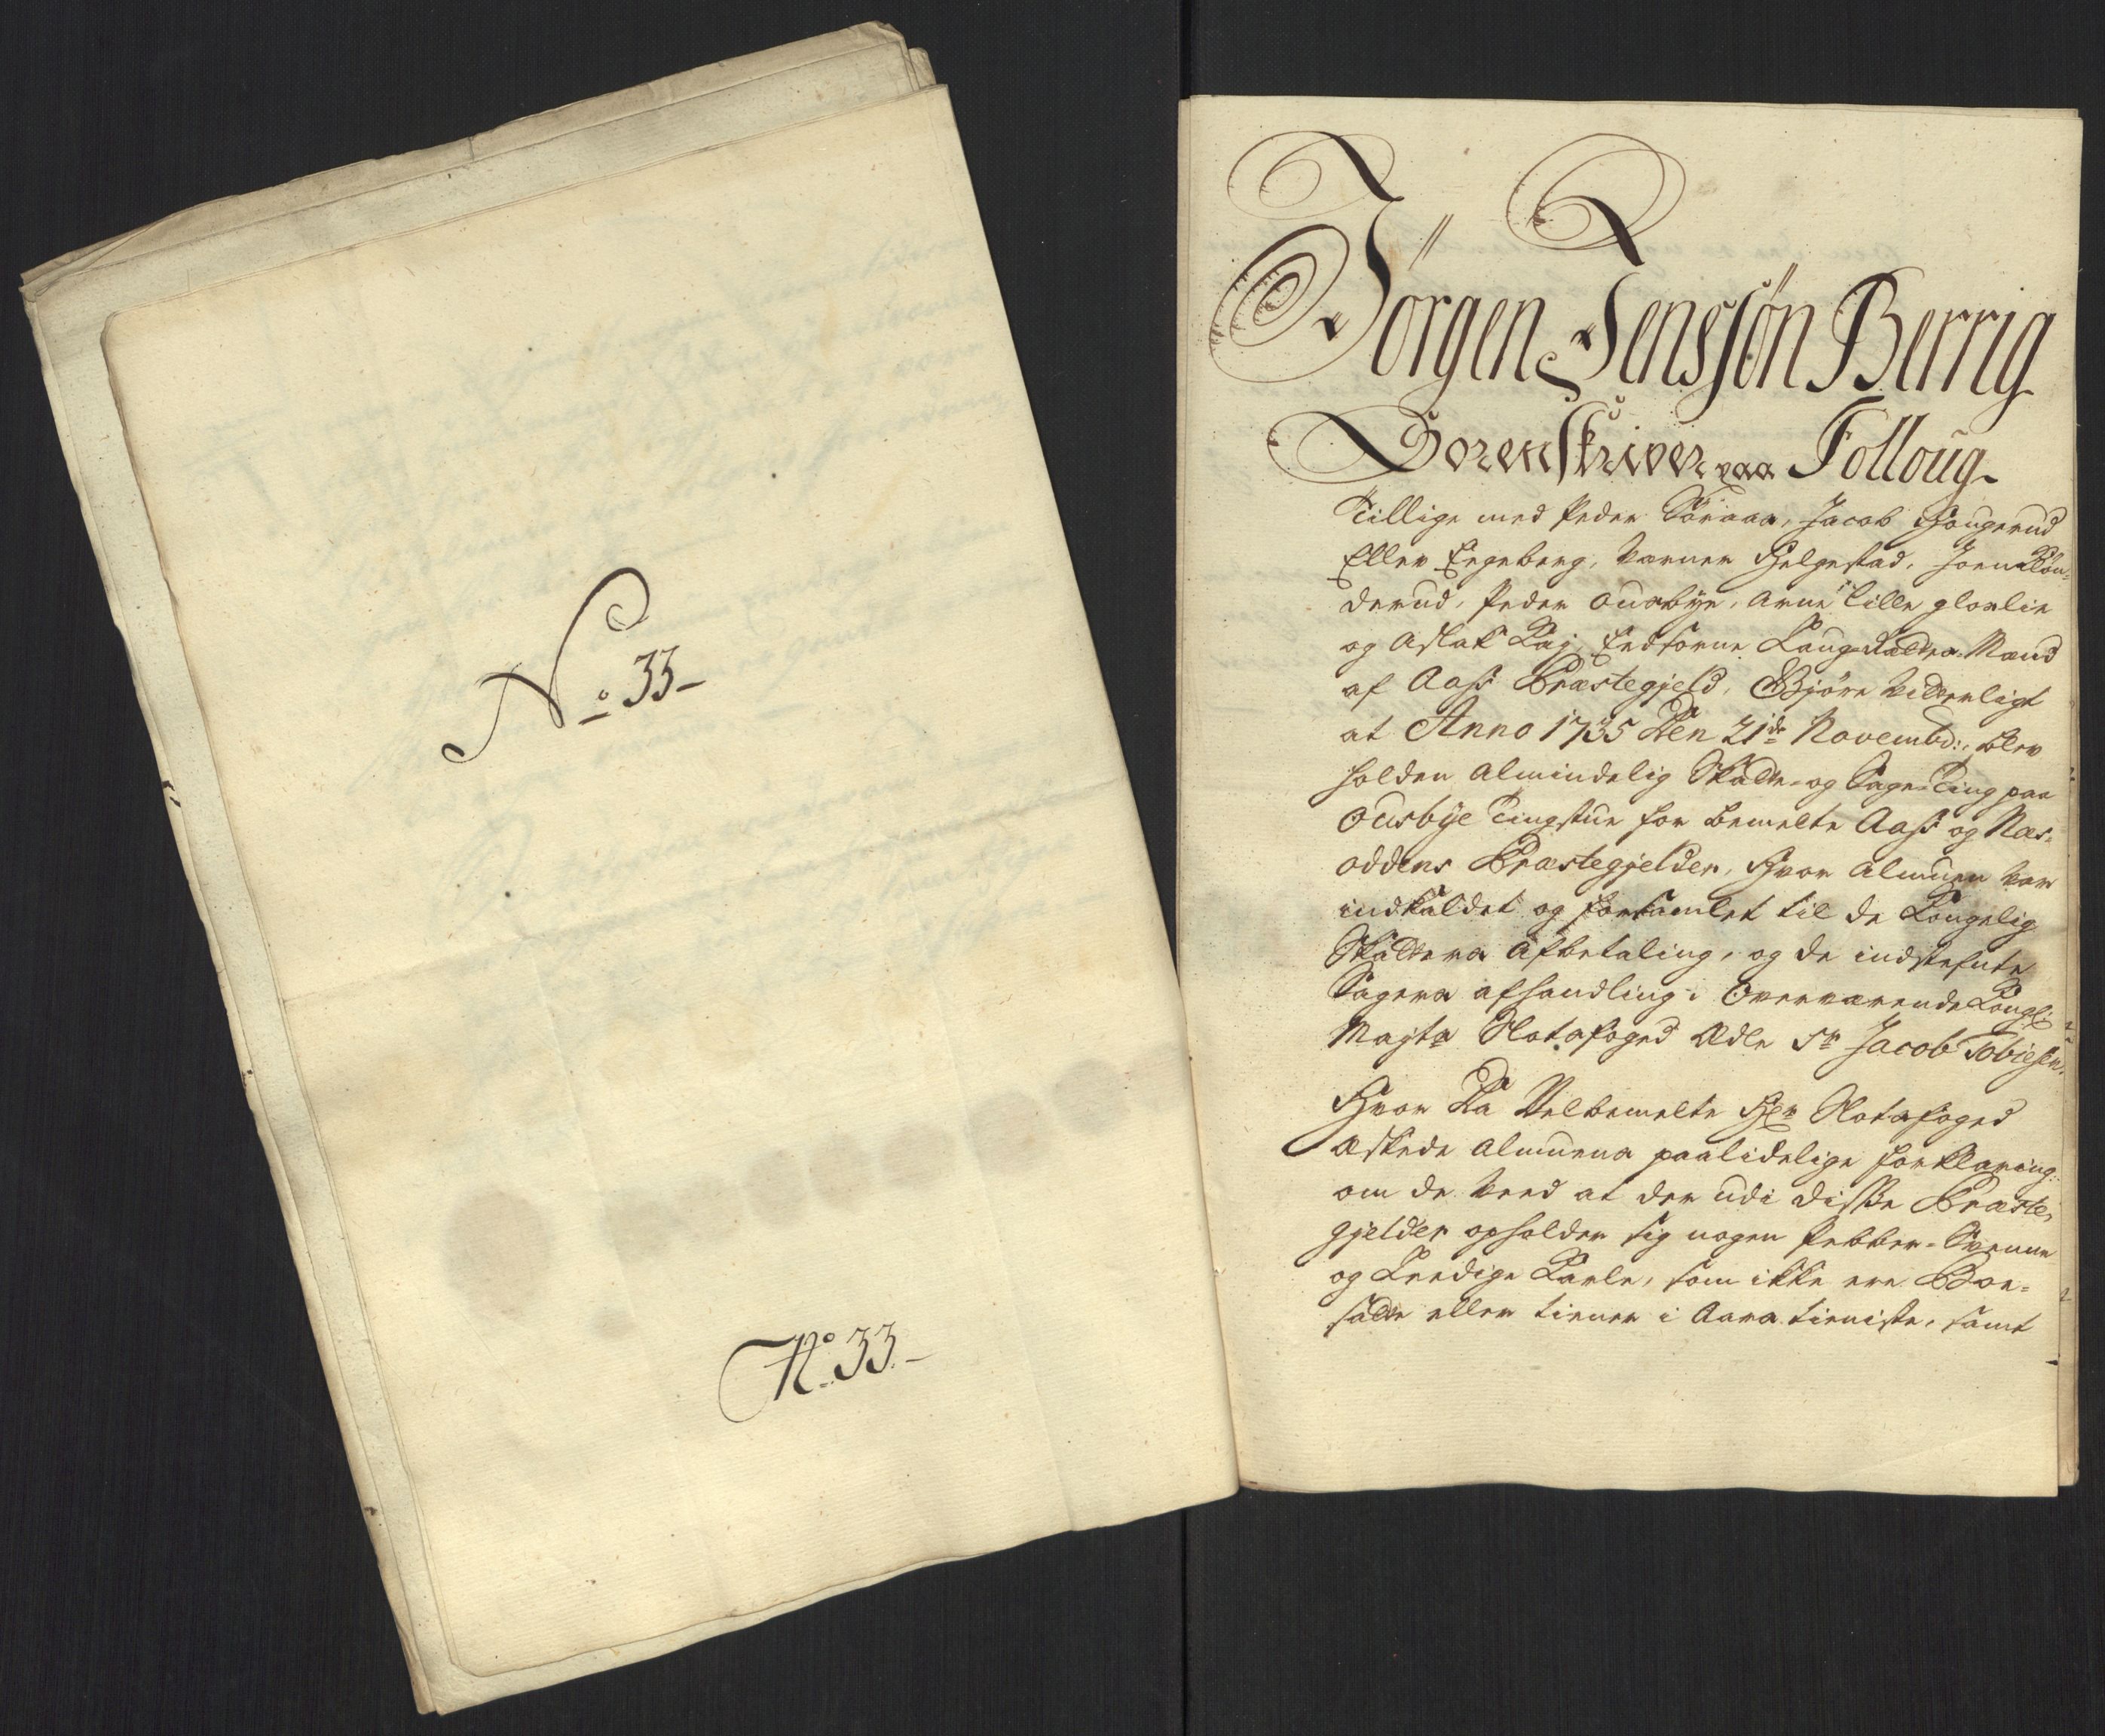 No 33-
No 33.-
Jörgen Jenssön Berrig
Sorenskriver paa Folloug
Tillige med Peder Söraas, Jacob Hougerud
Eller Egeberg, Varner Helgestad, Joen Klön-
derud, Peder Ousbÿe, Arne Lille glorlie
og Aslak Kaj, Eedsorne Laug-Rættes-Mænd
af Aass Præstegjeld, Gjöre Vitterligt
at Anno 1735 Den 21de Novembr:, blev
holden Almindelig Skatte- og Sage-Ting paa
Ousbÿe Tingstue for bemelte Aass og Næs-
oddens Præstegjelder, Hvor Almuen var
indkaldet og forsamlet til de Kongelig
Skatters Afbetaling, og de indstefnte
Sagers afhandling i Overværende Kongl:
Majts Slotsfoged Ædle Sr Jacob Tobiesen.
Hvor Da Velbemelte Hr Slotsfoged
Æskede Almuens paalidelige forklaring:
om de veed at der udi disse Præste-
gjelder opholder sig nogen Pebber-Svenne
og Leedige Karle, som ikke ere Boe-
satte eller tiener i Aars tieniste, samt